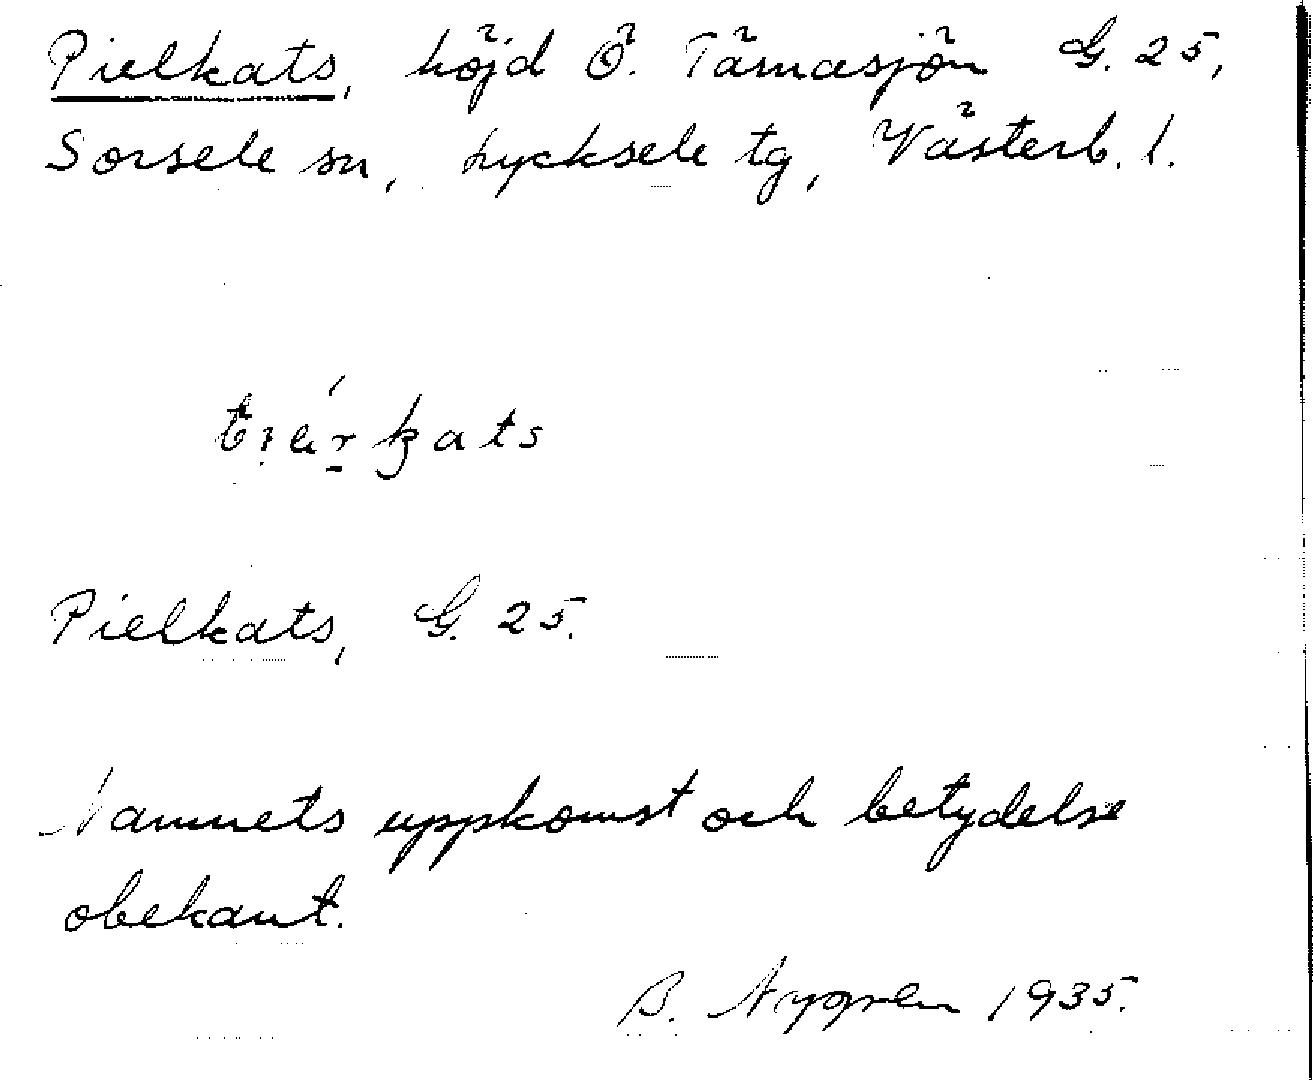 Pielkats, höjd Ö. Tärnasjön G. 25,
Sorsele sn, Lycksele tg, Västerb. l.
Pielkats, G. 25.
Namnets uppkomst och betydelse
obekant.
B. Nygren 1935.